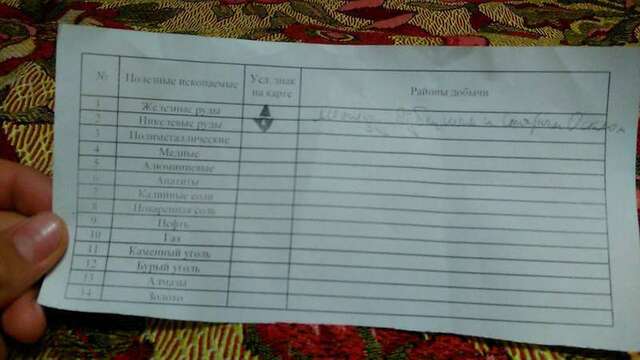 № Полезные ископаемые Усл. знак на карте Районы добычи
1 Железные руды
2 Никелевые руды
3 Полиметаллические
4 Медные
5 Алюминиевые
6 Апатиты
7 Калийные соли
8 Поваренная соль
9 Нефть
10 Газ
11 Каменный уголь
12 Бурый уголь
13 Алмазы
14 Золото